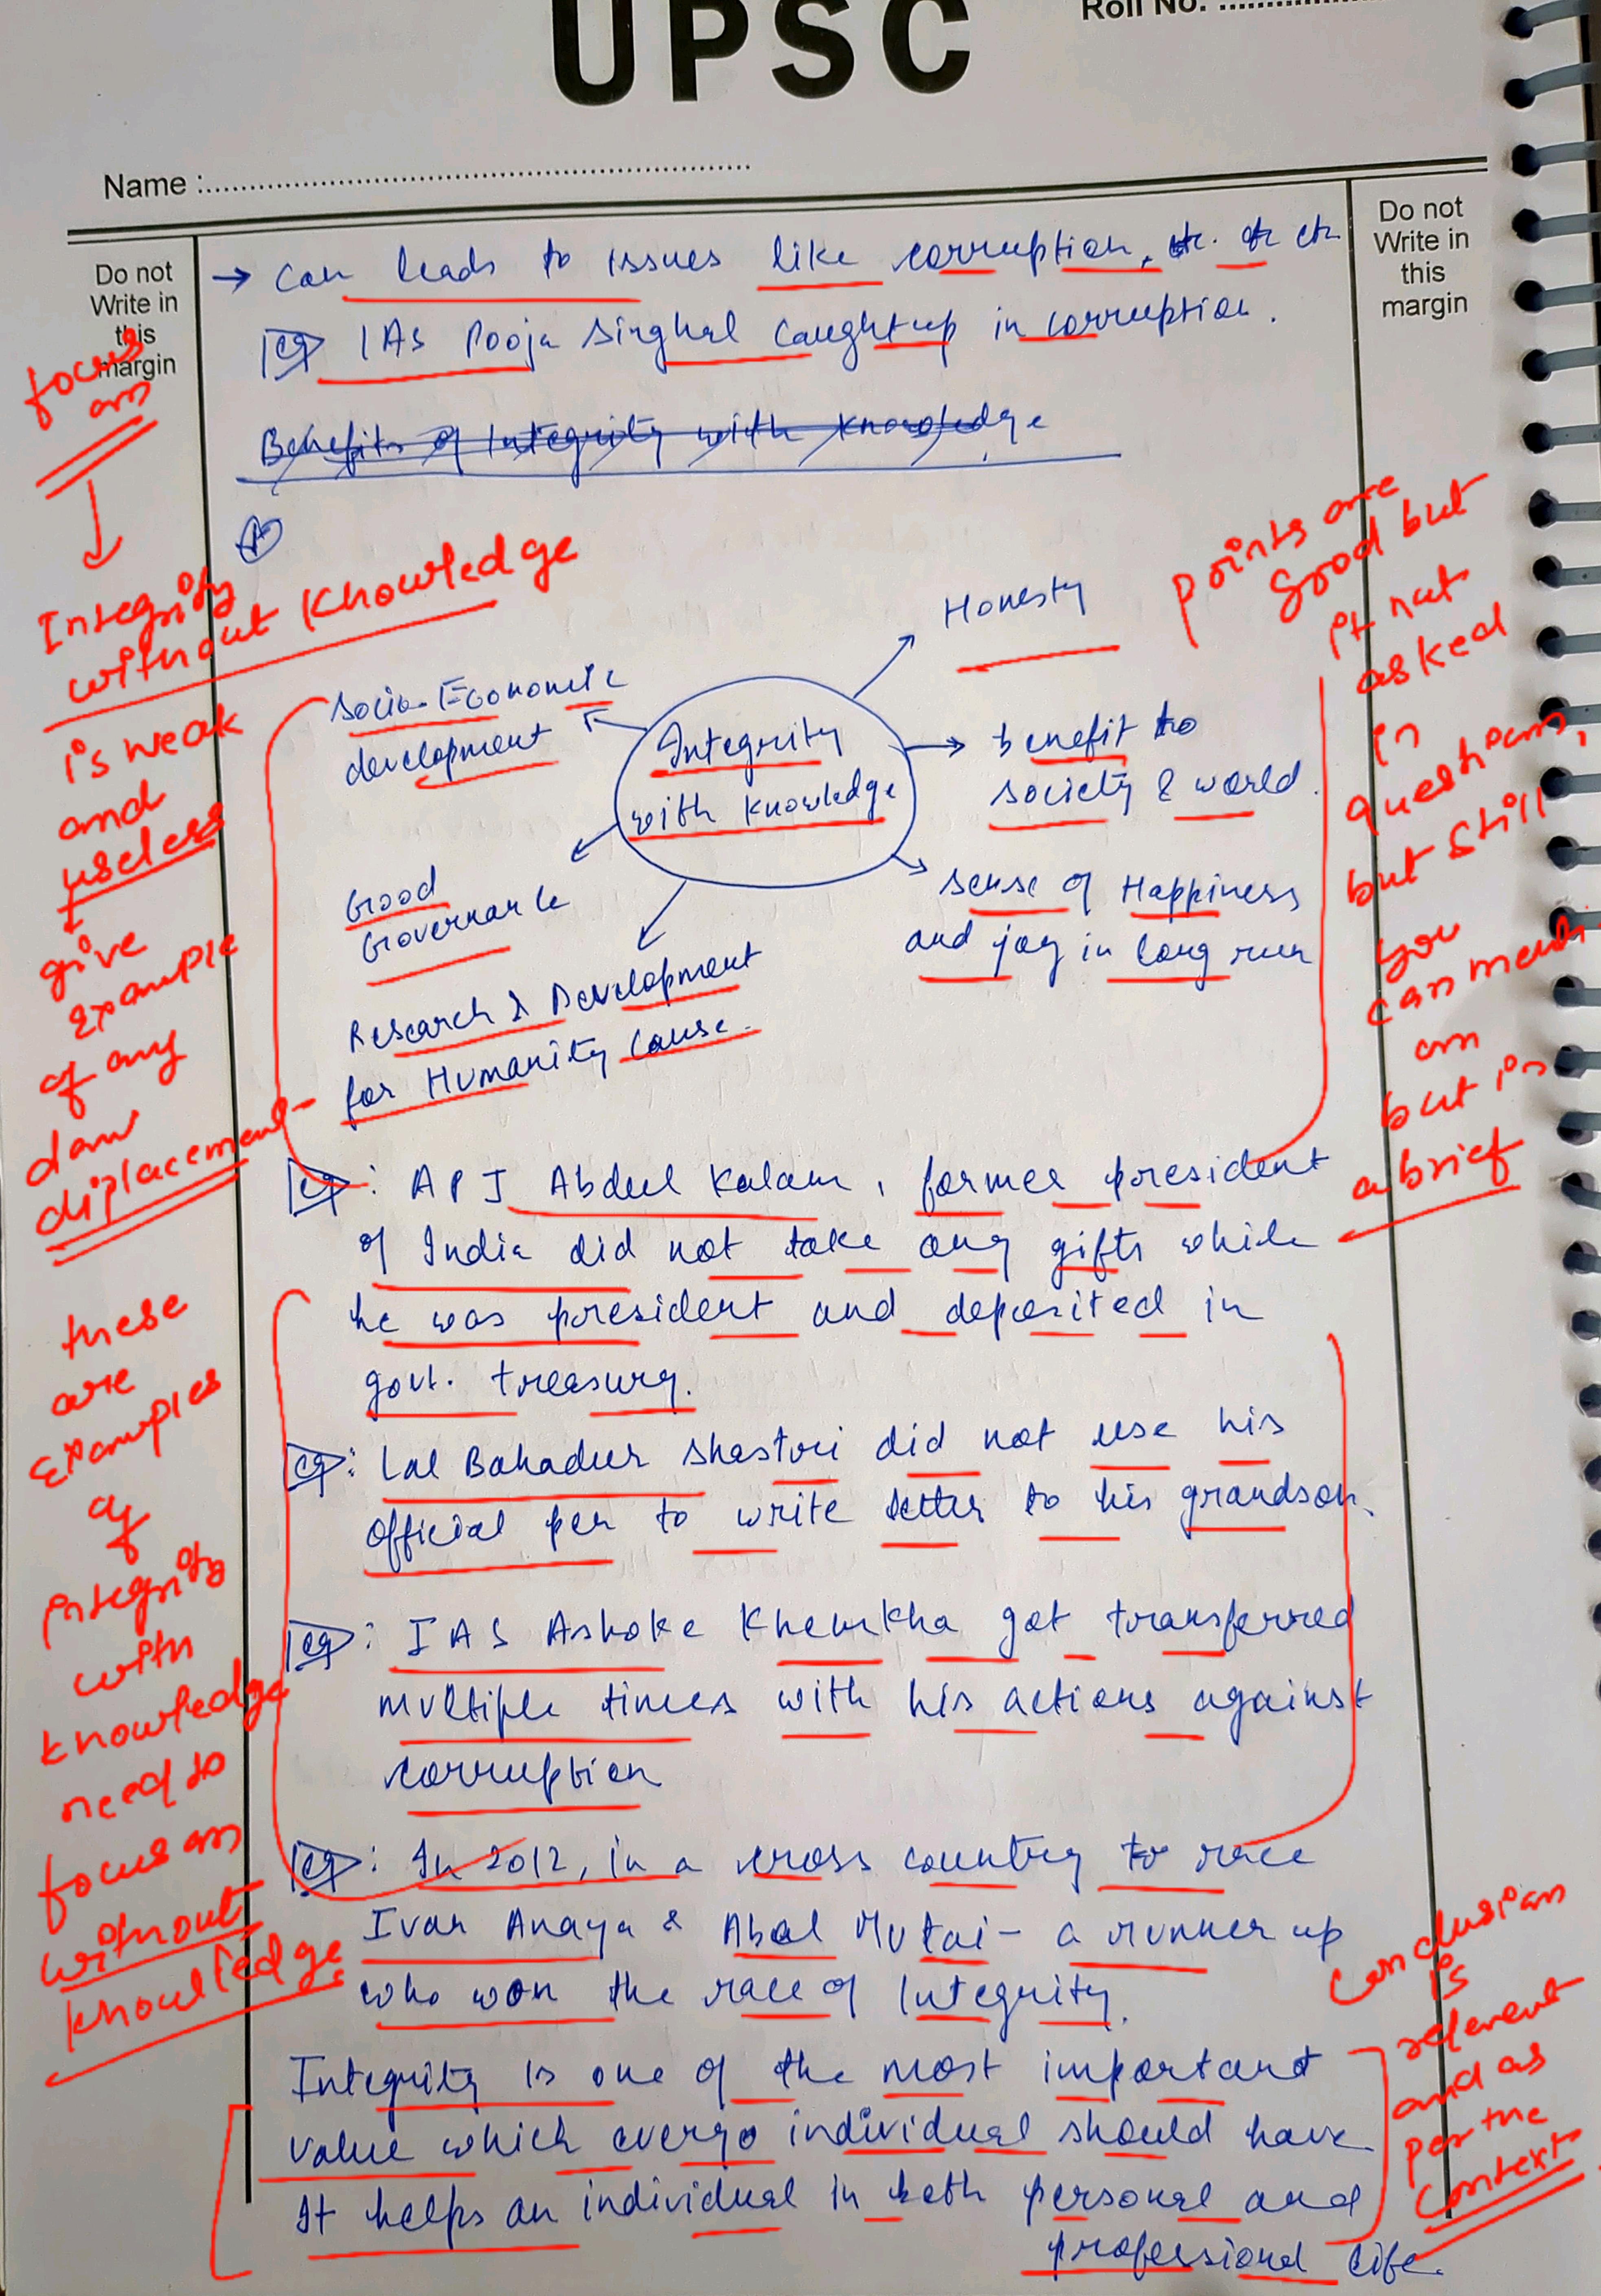 UPSC
Roll No. ........................
Name :........................................................................
Do not
Write in
this
margin
Do not
Write in
this
margin
→ can leads to issues like corruption, etc.
eg IAS Pooja Singhal caught up in corruption.
Benefits of Integrity with knowledge
focus
on
Integrity
without Knowledge
is weak
and
useless
give
example
of any
dam
displacement
Honesty
Socio-Economic
development
Integrity
with knowledge
benefit to
society & world.
Good
Governance
sense of Happiness
and joy in long run
Research & Development
for Humanity cause.
points are
good but
it not
asked
in
questions,
but still
you
can menti
on
but in
a brief
eg: APJ Abdul Kalam, former president
of India did not take any gifts while
he was president and deposited in
govt. treasury.
eg: Lal Bahadur Shastri did not use his
official pen to write letter to his grandson.
eg: IAS Ashoke Khemkha got transferred
multiple times with his actions against
corruption
eg: In 2012, in a cross country to race
Ivan Anaya & Abel Mutai - a runner up
who won the race of Integrity.
these
are
examples
of
integrity
with
knowledge
need to
focus on
without
knowledge
Integrity is one of the most important
value which every individual should have.
It helps an individual in both personal and
professional life.
Conclusion
is
relevent
and as
per the
context